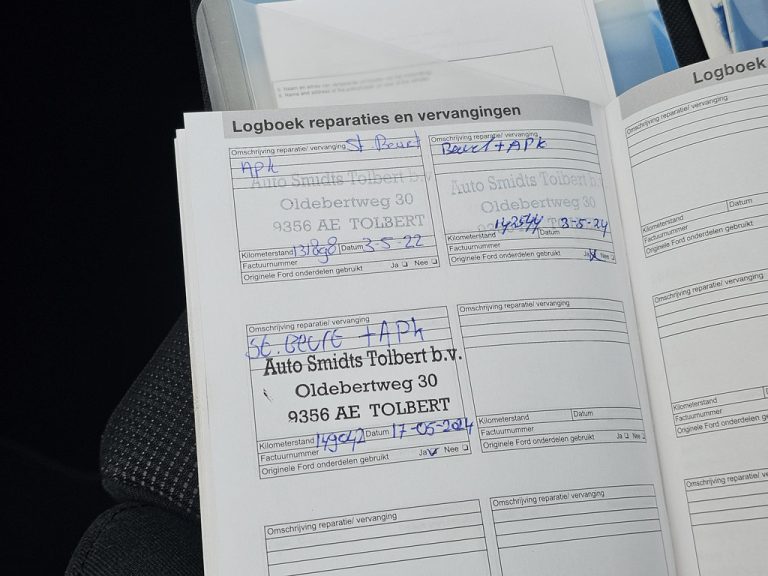 Logboek reparaties en vervangingen
Omschrijving reparatie/ vervanging St Beurt
APK
Auto Smidts Tolbert b.v.
Oldebertweg 30
9356 AE TOLBERT
Kilometerstand 131898 Datum 3-5-22
Factuurnummer
Originele Ford onderdelen gebruikt Ja Nee
Omschrijving reparatie/ vervanging
Beurt + APK
Auto Smidts Tolbert b.v.
Oldebertweg 30
9356 AE TOLBERT
Kilometerstand 142544 Datum 3-5-24
Factuurnummer
Originele Ford onderdelen gebruikt Ja Nee
Omschrijving reparatie/ vervanging
St. Beurt + APK
Auto Smidts Tolbert b.v.
Oldebertweg 30
9356 AE TOLBERT
Kilometerstand 149042 Datum 17-05-2024
Factuurnummer
Originele Ford onderdelen gebruikt Ja Nee
Omschrijving reparatie/ vervanging
Kilometerstand Datum
Factuurnummer
Originele Ford onderdelen gebruikt Ja Nee
Omschrijving reparatie/ vervanging
Omschrijving reparatie/ vervanging
Logboek
Omschrijving reparatie/ vervanging
Kilometerstand Datum
Factuurnummer
Originele Ford onderdelen gebruikt
Omschrijving reparatie/ vervanging
Kilometerstand
Factuurnummer
Originele Ford onderdelen gebruikt
Omschrijving reparatie/ vervanging